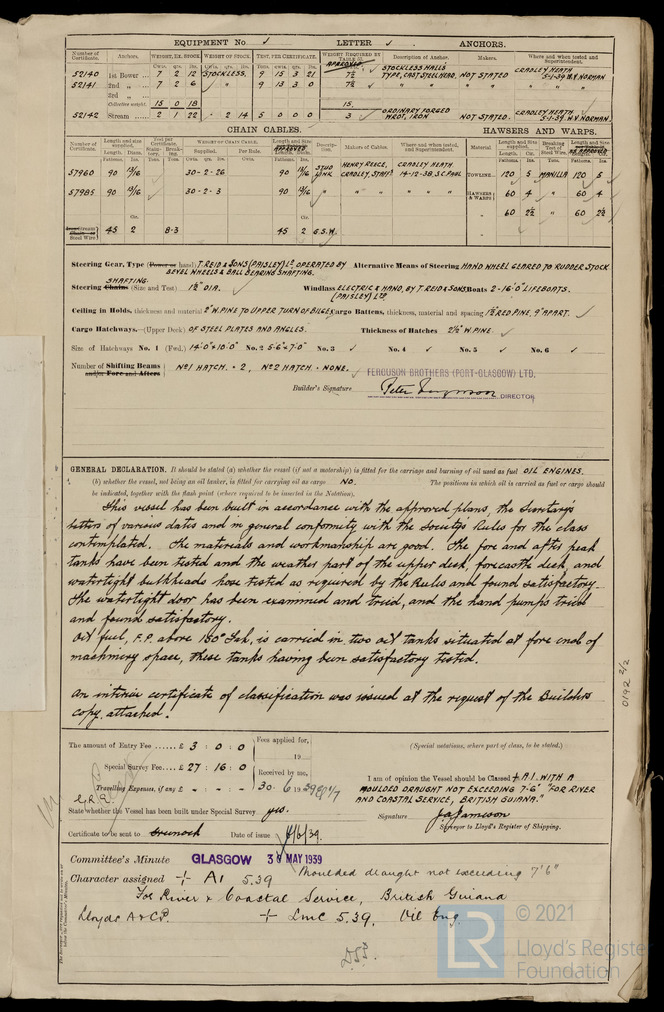 EQUIPMENT No ✓ LETTER ✓ ANCHORS.
Number of Certificate. Anchors. WEIGHT, EX. STOCK WEIGHT OF STOCK. TEST, PER CERTIFICATE. WEIGHT REQUIRED BY TABLE Description of Anchor. Makers. Where and when tested and Superintendent.
Cwts. qrs. lbs. Cwts. qrs. lbs. Tons. cwts. qrs. lbs. APPROVED
52140 1st Bower ... 7 2 12 STOCKLESS. 9 15 3 21 7½ STOCKLESS HALLS TYPE, CAST STEEL HEAD, NOT STATED CRADLEY HEATH 5-1-39. W.V. NORMAN
52141 2nd „ ... 7 2 6 " 9 13 3 0 7½ " " "
3rd „ ...
Collective weight. 15 0 18 15.
52142 Stream ... 2 1 22 2 14 5 0 0 0 3 ORDINARY FORGED WROT, IRON NOT STATED. CRADLEY HEATH 5-1-39. W.V. NORMAN.
CHAIN CABLES. HAWSERS AND WARPS.
Number of Certificate. Length and size supplied. Test per Certificate. WEIGHT OF CHAIN CABLE. Length and Size APPROVED Description. Makers of Cables. Where and when tested, and Superintendent. Material Length and Size supplied. Breaking Test of Steel Wire. Length and Size AS APPROVED
Fathoms. Diam. Supplied. Per Rule. Fathoms. Ins. Fathoms. Cir. Tons. Fathoms. Ins.
57960 90 30-2-26 90 STUD LINK HENRY REECE, CRADLEY, STAFFS CRADLEY HEATH 14-12-38. S.C. PAUL TOWLINE 120 5 MANILLA 120 5
57985 90 30-2-3 90 " " " " " HAWSERS & WARPS 60 4 " 60 4
„ 60 2½ " 60 2½
Steel Wire 45 2 8-3 45 2 G.S.W.
Steering Gear, Type (Power or hand) T. REID & SONS (PAISLEY) Ld. OPERATED BY BEVEL WHEELS & BALL BEARING SHAFTING. Alternative Means of Steering HAND WHEEL GEARED TO RUDDER STOCK
SHAFTING
Steering Chains (Size and Test) 1½" DIA. Windlass ELECTRIC & HAND, BY T. REID & SONS (PAISLEY) LTD. Boats 2-16'0" LIFEBOATS.
Ceiling in Holds, thickness and material 2" W. PINE TO UPPER TURN OF BILGES Cargo Battens, thickness, material and spacing 1½" RED PINE, 9" APART. ✓
Cargo Hatchways.—(Upper Deck) OF STEEL PLATES AND ANGLES. Thickness of Hatches 2½" W. PINE. ✓
Size of Hatchways No. 1 (Fwd.) 14'0" × 10'0" No. 2 5'6" × 7'0" No. 3 ✓ No. 4 ✓ No. 5 ✓ No. 6 ✓
Number of Shifting Beams and/or Fore and Afters No 1 HATCH. - 2, No 2 HATCH - NONE. ✓
FERGUSON BROTHERS (PORT-GLASGOW) LTD.
Builder's Signature Peter Ferguson DIRECTOR
GENERAL DECLARATION. It should be stated (a) whether the vessel (if not a motorship) is fitted for the carriage and burning of oil used as fuel OIL ENGINES.
(b) whether the vessel, not being an oil tanker, is fitted for carrying oil as cargo NO. The positions in which oil is carried as fuel or cargo should
be indicated, together with the flash point (where required to be inserted in the Notation).
This vessel has been built in accordance with the approved plans, the Secretary's
letters of various dates and in general conformity with the Society's Rules for the class
contemplated. The materials and workmanship are good. The fore and after peak
tanks have been tested and the weather part of the upper deck, forecastle deck, and
watertight bulkheads hose tested as required by the Rules and found satisfactory.
The watertight door has been examined and tried, and the hand pumps tried
and found satisfactory.
Oil fuel, F.P. above 150° Fah. is carried in two oil tanks situated at fore end of
machinery space, these tanks having been satisfactory tested.
An interim certificate of classification was issued at the request of the Builders
copy attached.
0192 2/2
The amount of Entry Fee ...... £ 3 : 0 : 0 Fees applied for,
19
(Special notations, where part of class, to be stated.)
Special Survey Fee ... £ 27 : 16 : 0 Received by me,
Travelling Expenses, if any £ - : - : - 30. 6 1939
I am of opinion the Vessel should be Classed + A1. WITH A
MOULDED DRAUGHT NOT EXCEEDING 7'-6" "FOR RIVER
AND COASTAL SERVICE, BRITISH GUIANA."
State whether the Vessel has been built under Special Survey yes.
Signature J.A. Jamieson
Surveyor to Lloyd's Register of Shipping.
Certificate to be sent to Greenock Date of issue 6/6/39.
Committee's Minute GLASGOW 3 MAY 1939
Character assigned + A1 5.39 Moulded draught not exceeding 7'6"
For River & Coastal Service, British Guiana
Lloyds A & CP. + LMC 5.39. Oil Eng.
© 2021
LR Lloyd's Register
Foundation